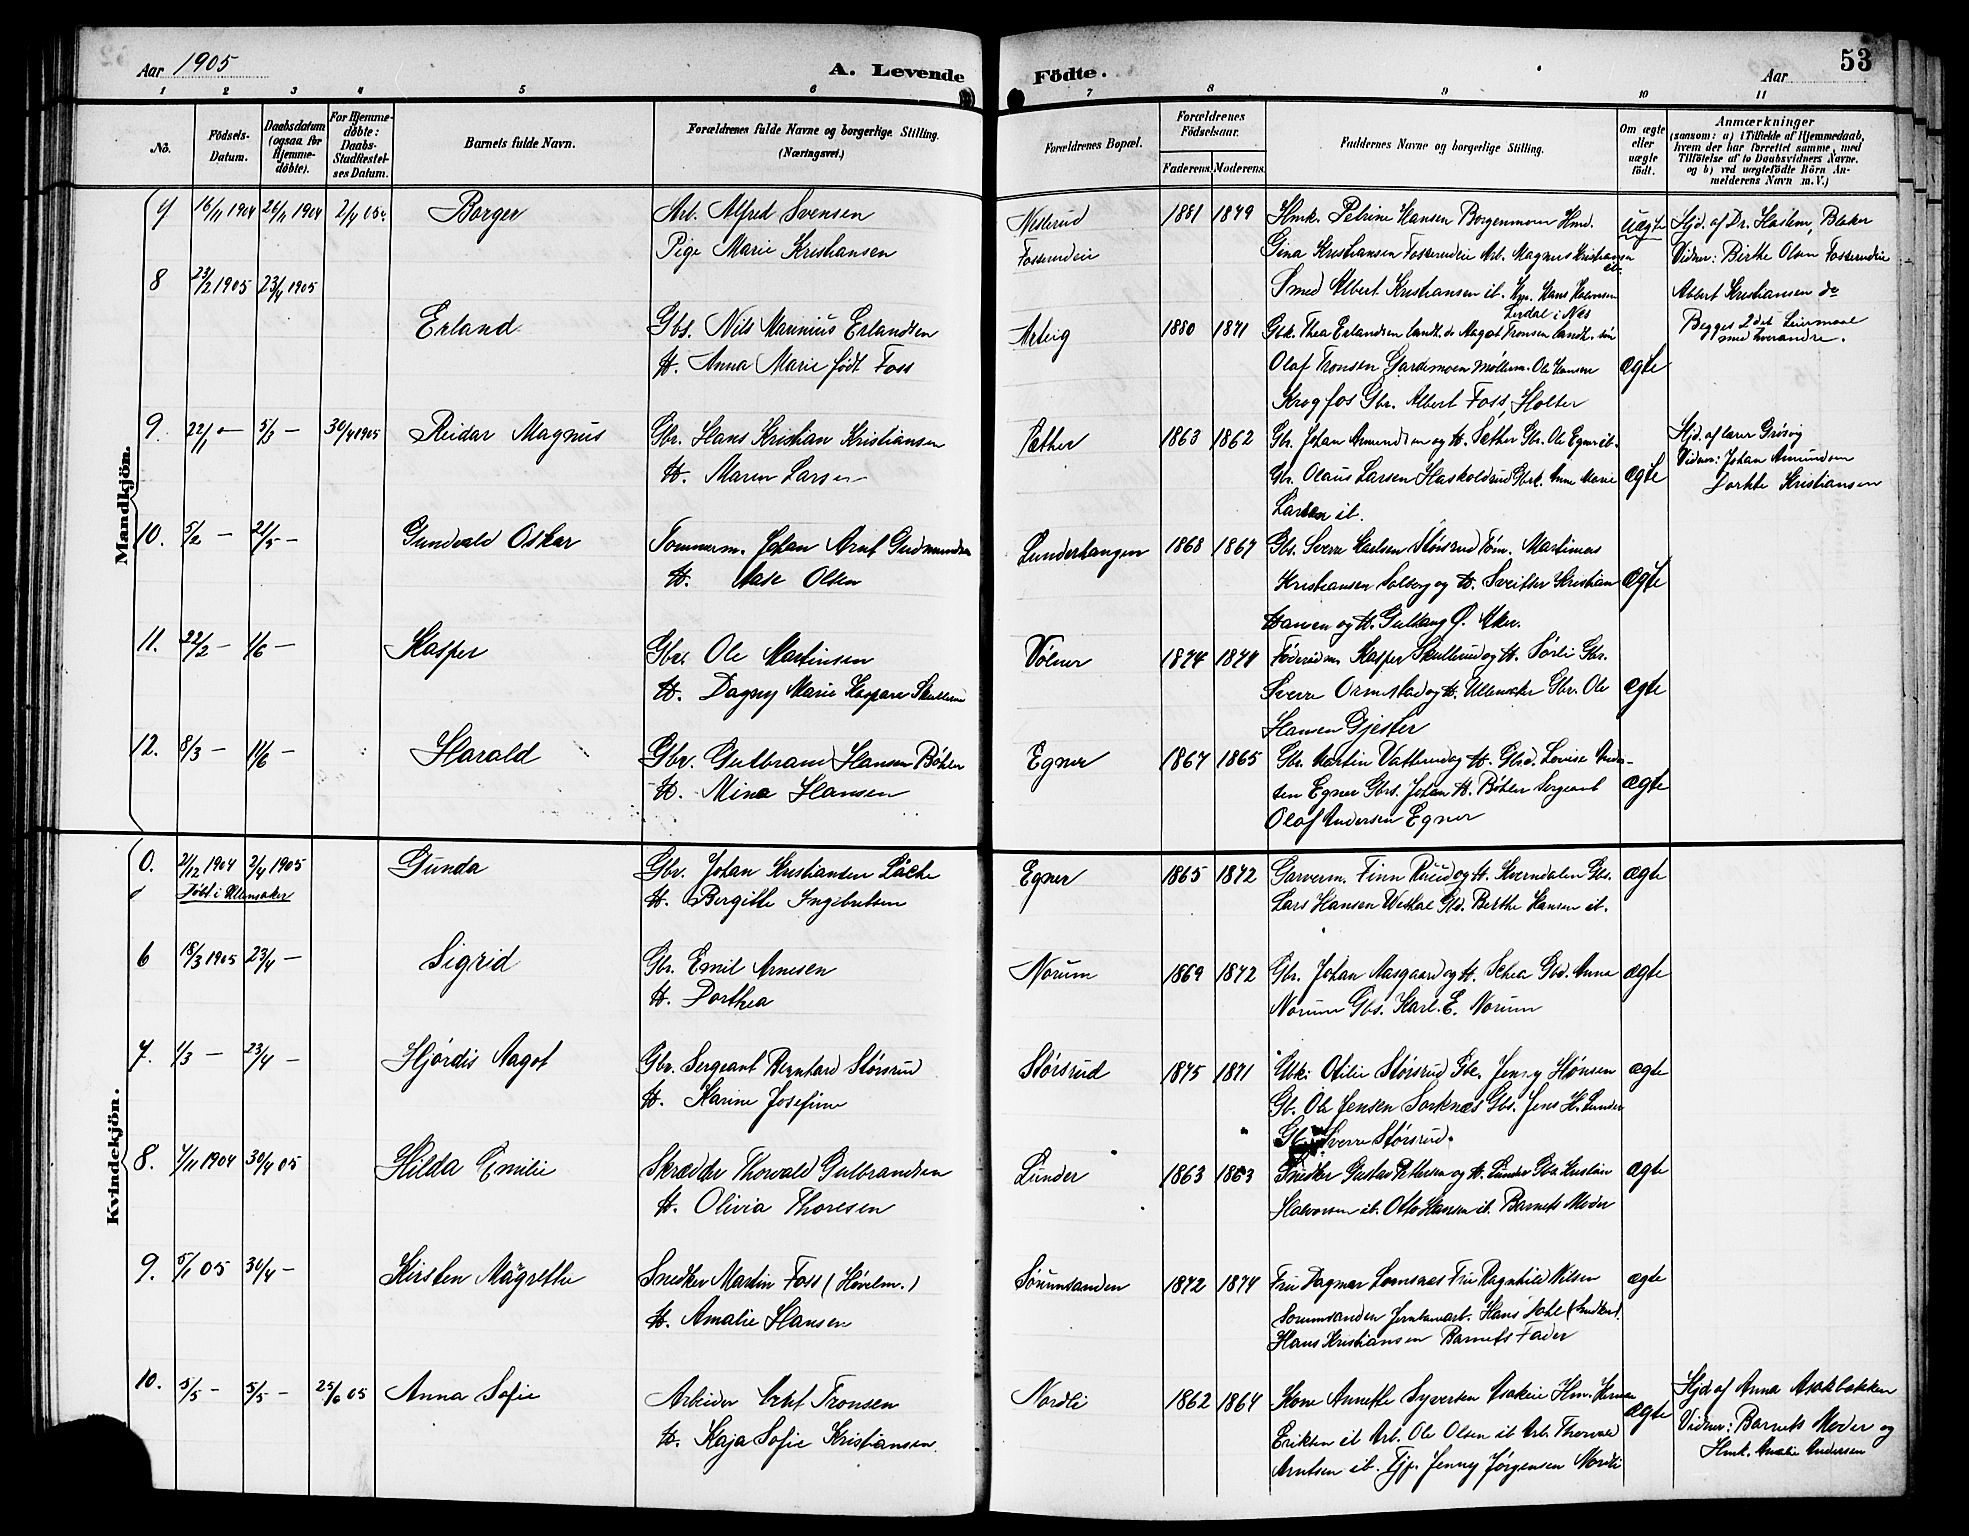 Aar 1905
A. Levende
Födte.
53
Aar
1 2 3 4 5 6 7 8 9 10 11
No.
Födsels-Datum.
Daabsdatum (ogsaa for Hjemme-döbte).
For Hjemme-døbte: Daabs-Stadfæstel-ses Datum.
Barnets fulde Navn.
Forældrenes fulde Navne og borgerlige Stilling. (Næringsvei.)
Forældrenes Bopæl.
Forældrenes Födselsaar.
Faderens. Moderens.
Faddernes Navne og borgerlige Stilling.
Om ægte eller uægte födt.
Anmærkninger
(saasom: a) i Tilfælde af Hjemmedaab, hvem der har forrettet samme, med Tilföielse af to Daabsvidners Navne. og b) ved uægtefödte Börn Anmelderens Navn m.V.)
Mandkjön.
7 16/11 1904 26/11 1904 2/4 05 Borger Arb. Alfred Svensen
Pige Marie Kristiansen
Nesterud
Fosserudeie
1881 1879 Hmk. Petrine Hansen Borgenmoen Hmd.
Gina Kristiansen Fosserudeie Arb. Magnus Kristiansen ib.
Smed Albert Kristiansen ib. Hans
Lerdal i Nes
uægte
Hjd. af Dr. Haslem, Blaker
Vidner: Birthe Olsen Fosserudeie
Albert Kristiansen do
Begges 2det Leiermaal
med hverandre.
8 23/2 1905 23/4 1905 Erland Gbs. Nils Marinius Erlandsen
H. Anna Marie født Foss
Asteig 1880 1871 Gbk. Thea Erlandsen Aagot Tronsen
Olaf Tronsen Gardemoen Møllerm. Ole Hansen
Krogfos Gbr. Albert Foss, Holter
ægte
9. 22/1 — 5/3 — 30/4 1905 Reidar Magnus Gbr. Hans Kristian Kristiansen
H. Maren Larsen
Sæther 1863 1862 Gbr. Johan Amundsen og H. Sæther Gbr. Ole Egner ib.
Gbr. Olaus Larsen Haskoldrud Gbrk. Anne Marie
Larsen ib.
ægte
Hjd. af lærer Grøsvig
Vidner: Johan Amundsen
Dorthe Kristiansen
10. 5/2 — 21/5 — Gundvald Oskar Tømmerm. Johan Arnt Gudmundsen
H. Aase Olsen
Lunderhaugen 1868 1867 Gbs. Sverre Karlsen Størsrud Tøm. Martinus
Kristiansen Solberg og H. Sveitser Kristian
Hansen og H. Gulhaug Ø. Aker.
ægte
11. 22/2 — 1/6 — Kasper Gbr. Ole Martinsen
H. Dagny Marie Kaspara Skullerud
Vølner 1874 1877 Føderådm. Kasper Skullerud og H. Sørli Gbr.
Sverre Ormstad og H. Ullensaker Gbr. Ole
Hansen Gjester
ægte
12. 8/3 — 11/6 — Harald Gbr. Gulbrand Hansen Bøhler
H. Mina Hansen
Egner 1867 1865 Gbr. Martin Vatterud og H. Gbrd. Lovise Ander-
sen Egner Gbrs. Johan H. Bøhler Sergeant
Olaf Andersen Egner
ægte
Kvindekjön.
0. 21/12 1904 2/4 1905 Gunda Gbr. Johan Kristiansen Låche
Døbt i Ullensaker
H. Bergitte Ingebretsen
Egner 1865 1872 Garverm. Finn Ruud og H. Kverndalen Gbs.
Lars Hansen Vestad Gbd. Berthe Hansen ib.
ægte
6 18/3 1905 23/4 — Sigrid Gbr. Emil Arnesen
H. Dorthea
Norum 1869 1872 Gbr. Johan Aasgaard og H. Schea Gbd. Anna
Norum Gbs. Karl. E. Norum
ægte
7. 1/3 — 23/4 — Hjørdis Aagot Gbr. Sergeant Bernhard Størsrud
H. Karine Josefine
Størsrud 1875 1871 Gbk. Otilie Størsrud Gbk. Jenny Hønsen
Gb. Ole Jensen Sorknæs Gbs. Jens H. Lunder
Gb. Sverre Størsrud.
ægte
8. 7/11 1904 30/4 05 Hilda Emilie Skrædder Thorvald Gulbrandsen
H. Olivia Thoresen
Lunder 1863 1863 Snedker Gustav Pettersen og H. Lunder Gbr. Kristian
Halvorsen ib. Otto Hansen ib. Barnets Moder
ægte
9. 5/1 05 30/4 — Kirsten Margrethe Snedker Martin Foss (Høvelm.)
H. Amalie Hansen
Sørumsanden 1872 1874 Fru Dagmar Lomsaas Fru Ragnhild Nilsen
Sørumsanden Jernbanearb. Hans Dahl (Snedker).
Hans Kristiansen Barnets Fader
ægte
10. 5/5 — 5/5 — 25/6 05 Anna Sofie Arbeider Arnt Tronsen
H. Kaja Sofie Kristiansen
Nordli 1862 1864 Kone Annette Syversen Asakeie Hm. Herman
Eriksen ib Arb. Ole Olsen ib Arb. Thorvald
Arntsen ib. Tjp. Jenny Jørgensen Nordli
ægte
Hjd af Anna Asakbakken
Vidner: Barnets Moder og
Hmk. Amalie Andersen